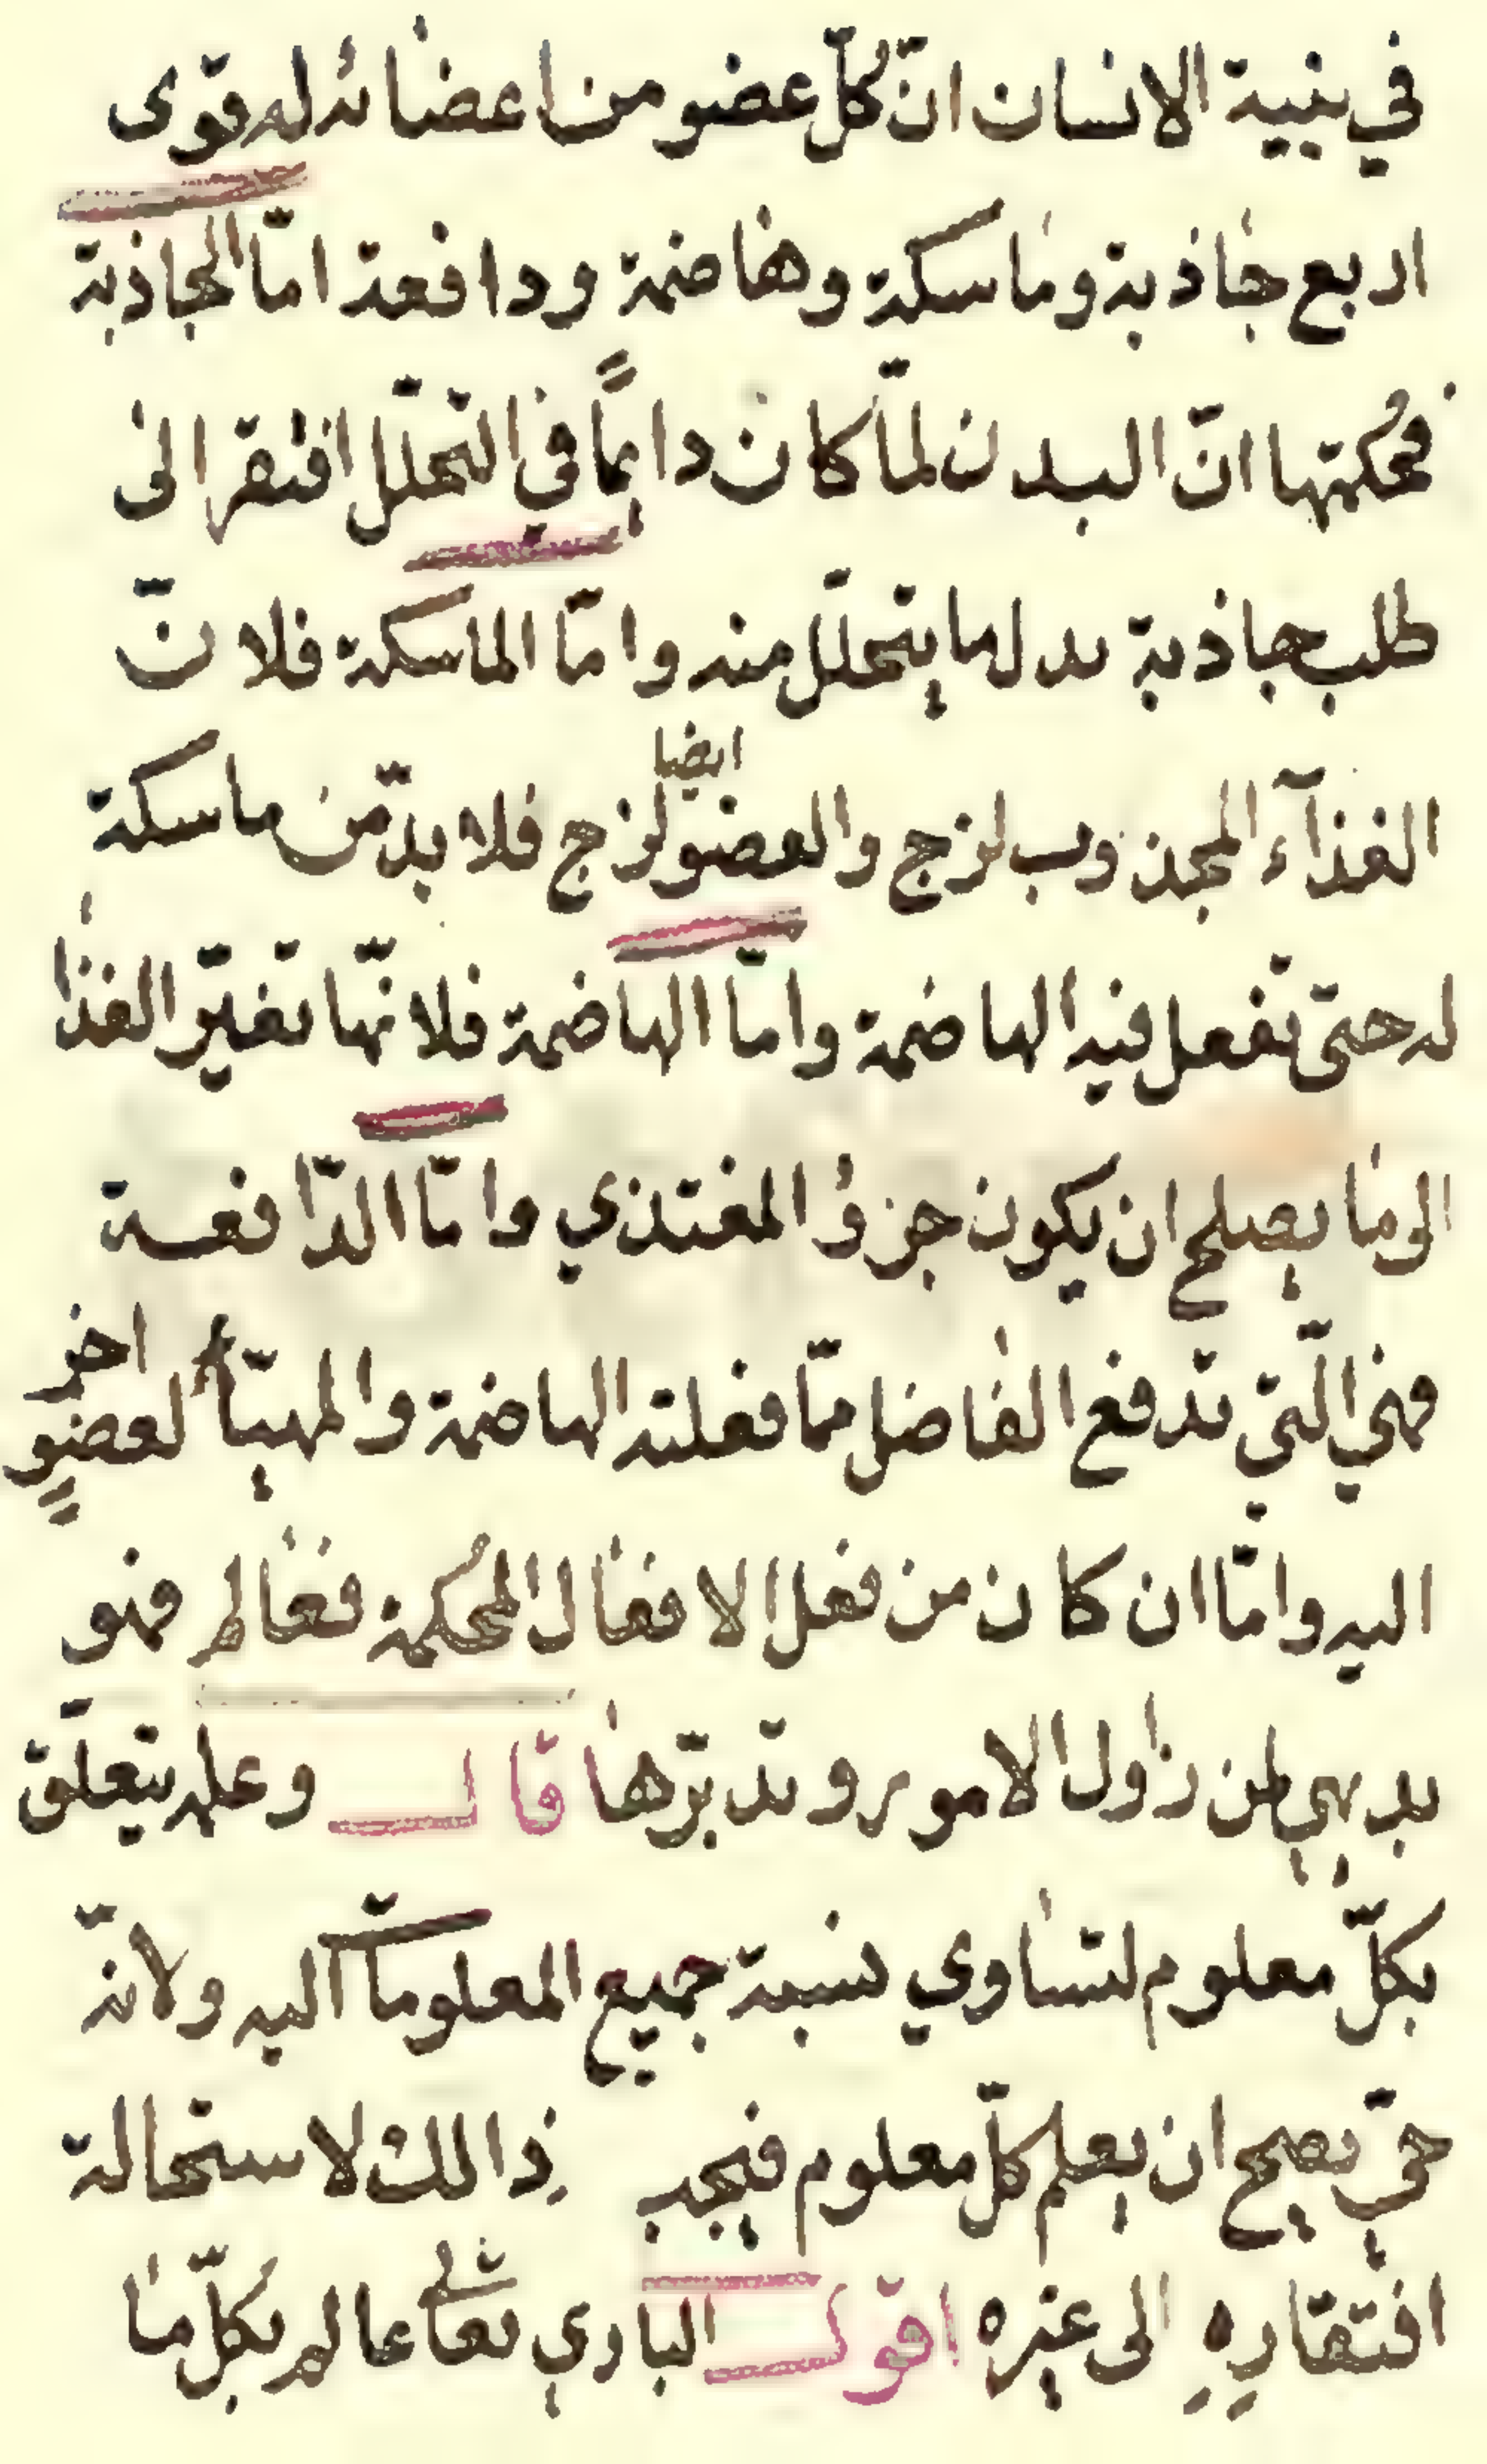 في بنية الانسان انّ كلّ عضو من اعضائه له قوى
اربع جاذبة وماسكة وهاضمة ودافعة امّا الجاذبة
فحُكمتها انّ البدن لمّا كان دايمًا في التحلّل افتقر الى
طلب جاذبة بدل ما يتحلّل منه وامّا الماسكة فلانّ
الغذآء المجذوب لزج والعضو ايضا لزج فلا بدّ من ماسكة
له حتى تفعل فيه الهاضمة وامّا الهاضمة فلانّها تغيّر الغذا
الى ما يصلح ان يكون جزؤ المغتذي وامّا الدّافعة
فهي الّتي تدفع الفاضل ممّا فعلته الهاضمة والمهيّأ لعضوٍ اخر
اليه وامّا ان كان من فعل الافعال المُحكمة فعالم فهو
بديهي لمن زاول الامور وتدبّرها قال وعلمه يتعلّق
بكلّ معلوم لتساوي نسبة جميع المعلومات اليه ولانّه
حيّ يصح ان يعلم كلّ معلوم فيجب ذالك لاستحالة
افتقارهِ الى غيره اقول الباري تعالى عالم بكلّ ما